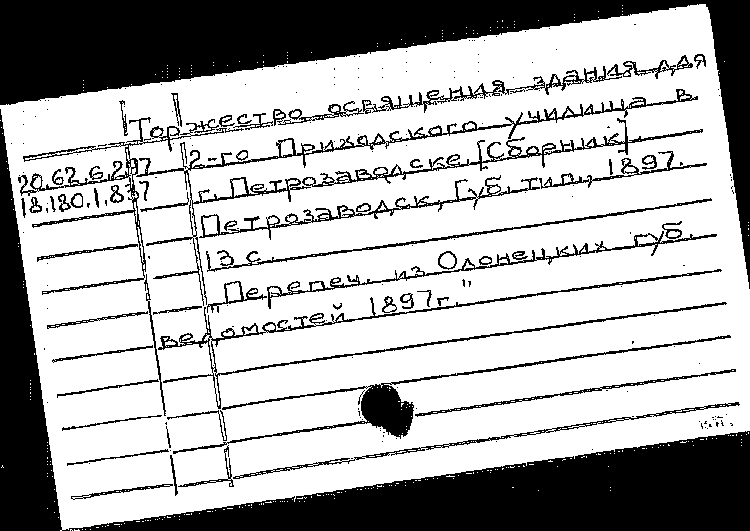 Торжество освящения здания для
20.62.6.297 2-го Приходского училища в
18.180.1.837 г. Петрозаводске. [Сборник].
Петрозаводск, Губ. тип., 1897.
13 с.
"Перепеч. из Олонецких губ.
ведомостей 1897г."